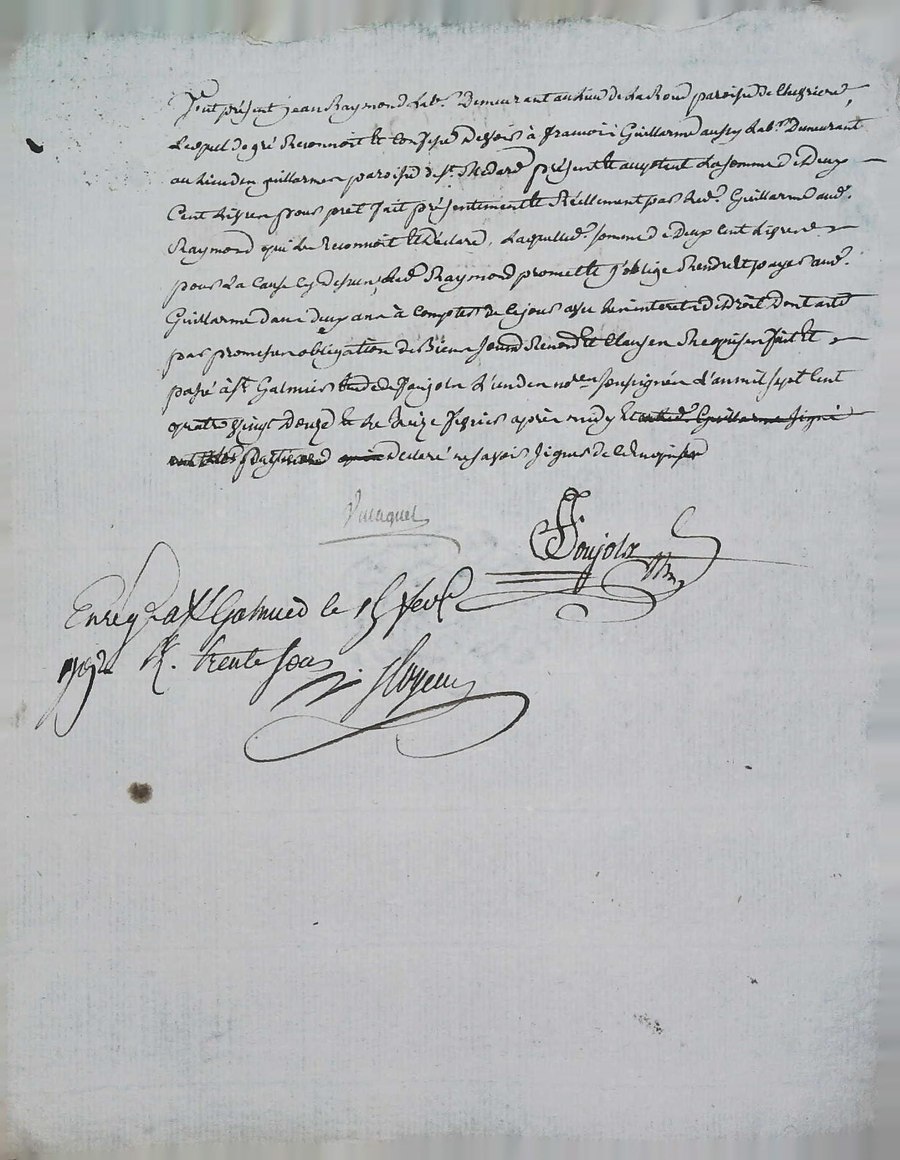 Fut présent jean Raymond Lab.r Demeurant au lieu de Laroue paroisse de chevriere
Lequel de gré Reconnoit et Confesse devoir à francois Guillarme aussy Lab.r Demeurant
au lieu den guillermen paroisse de St. Medard présent et acceptant La somme de Deux
Cent Livres pour pret fait présentement et Réellement par Led.t Guillarme aud.t
Raymond qui Le Reconnoit et Déclare, Laquelle d.e somme de Deux Cent Livres
pour La Cause Cy Dessus, Led.t Raymond promet et s'oblige Rendre et payer aud.t
Guillarme dans deux ans à Compter de Ce jour avec les interets de Droit Dont acte
par promesse obligation de Biens soumis Renond et Clauses Requises fait et
passé à St. Galmier Etude de Soujols L'un des no.res soussignés L'an mil sept cent
quatre vingt Douze et le treize fevrier après midy et Guillarme signé
Declaré ne savoir signer de Ce Requis
Soujols
Enreg à St Galmier le 15 fevr
1792 R. trente sous